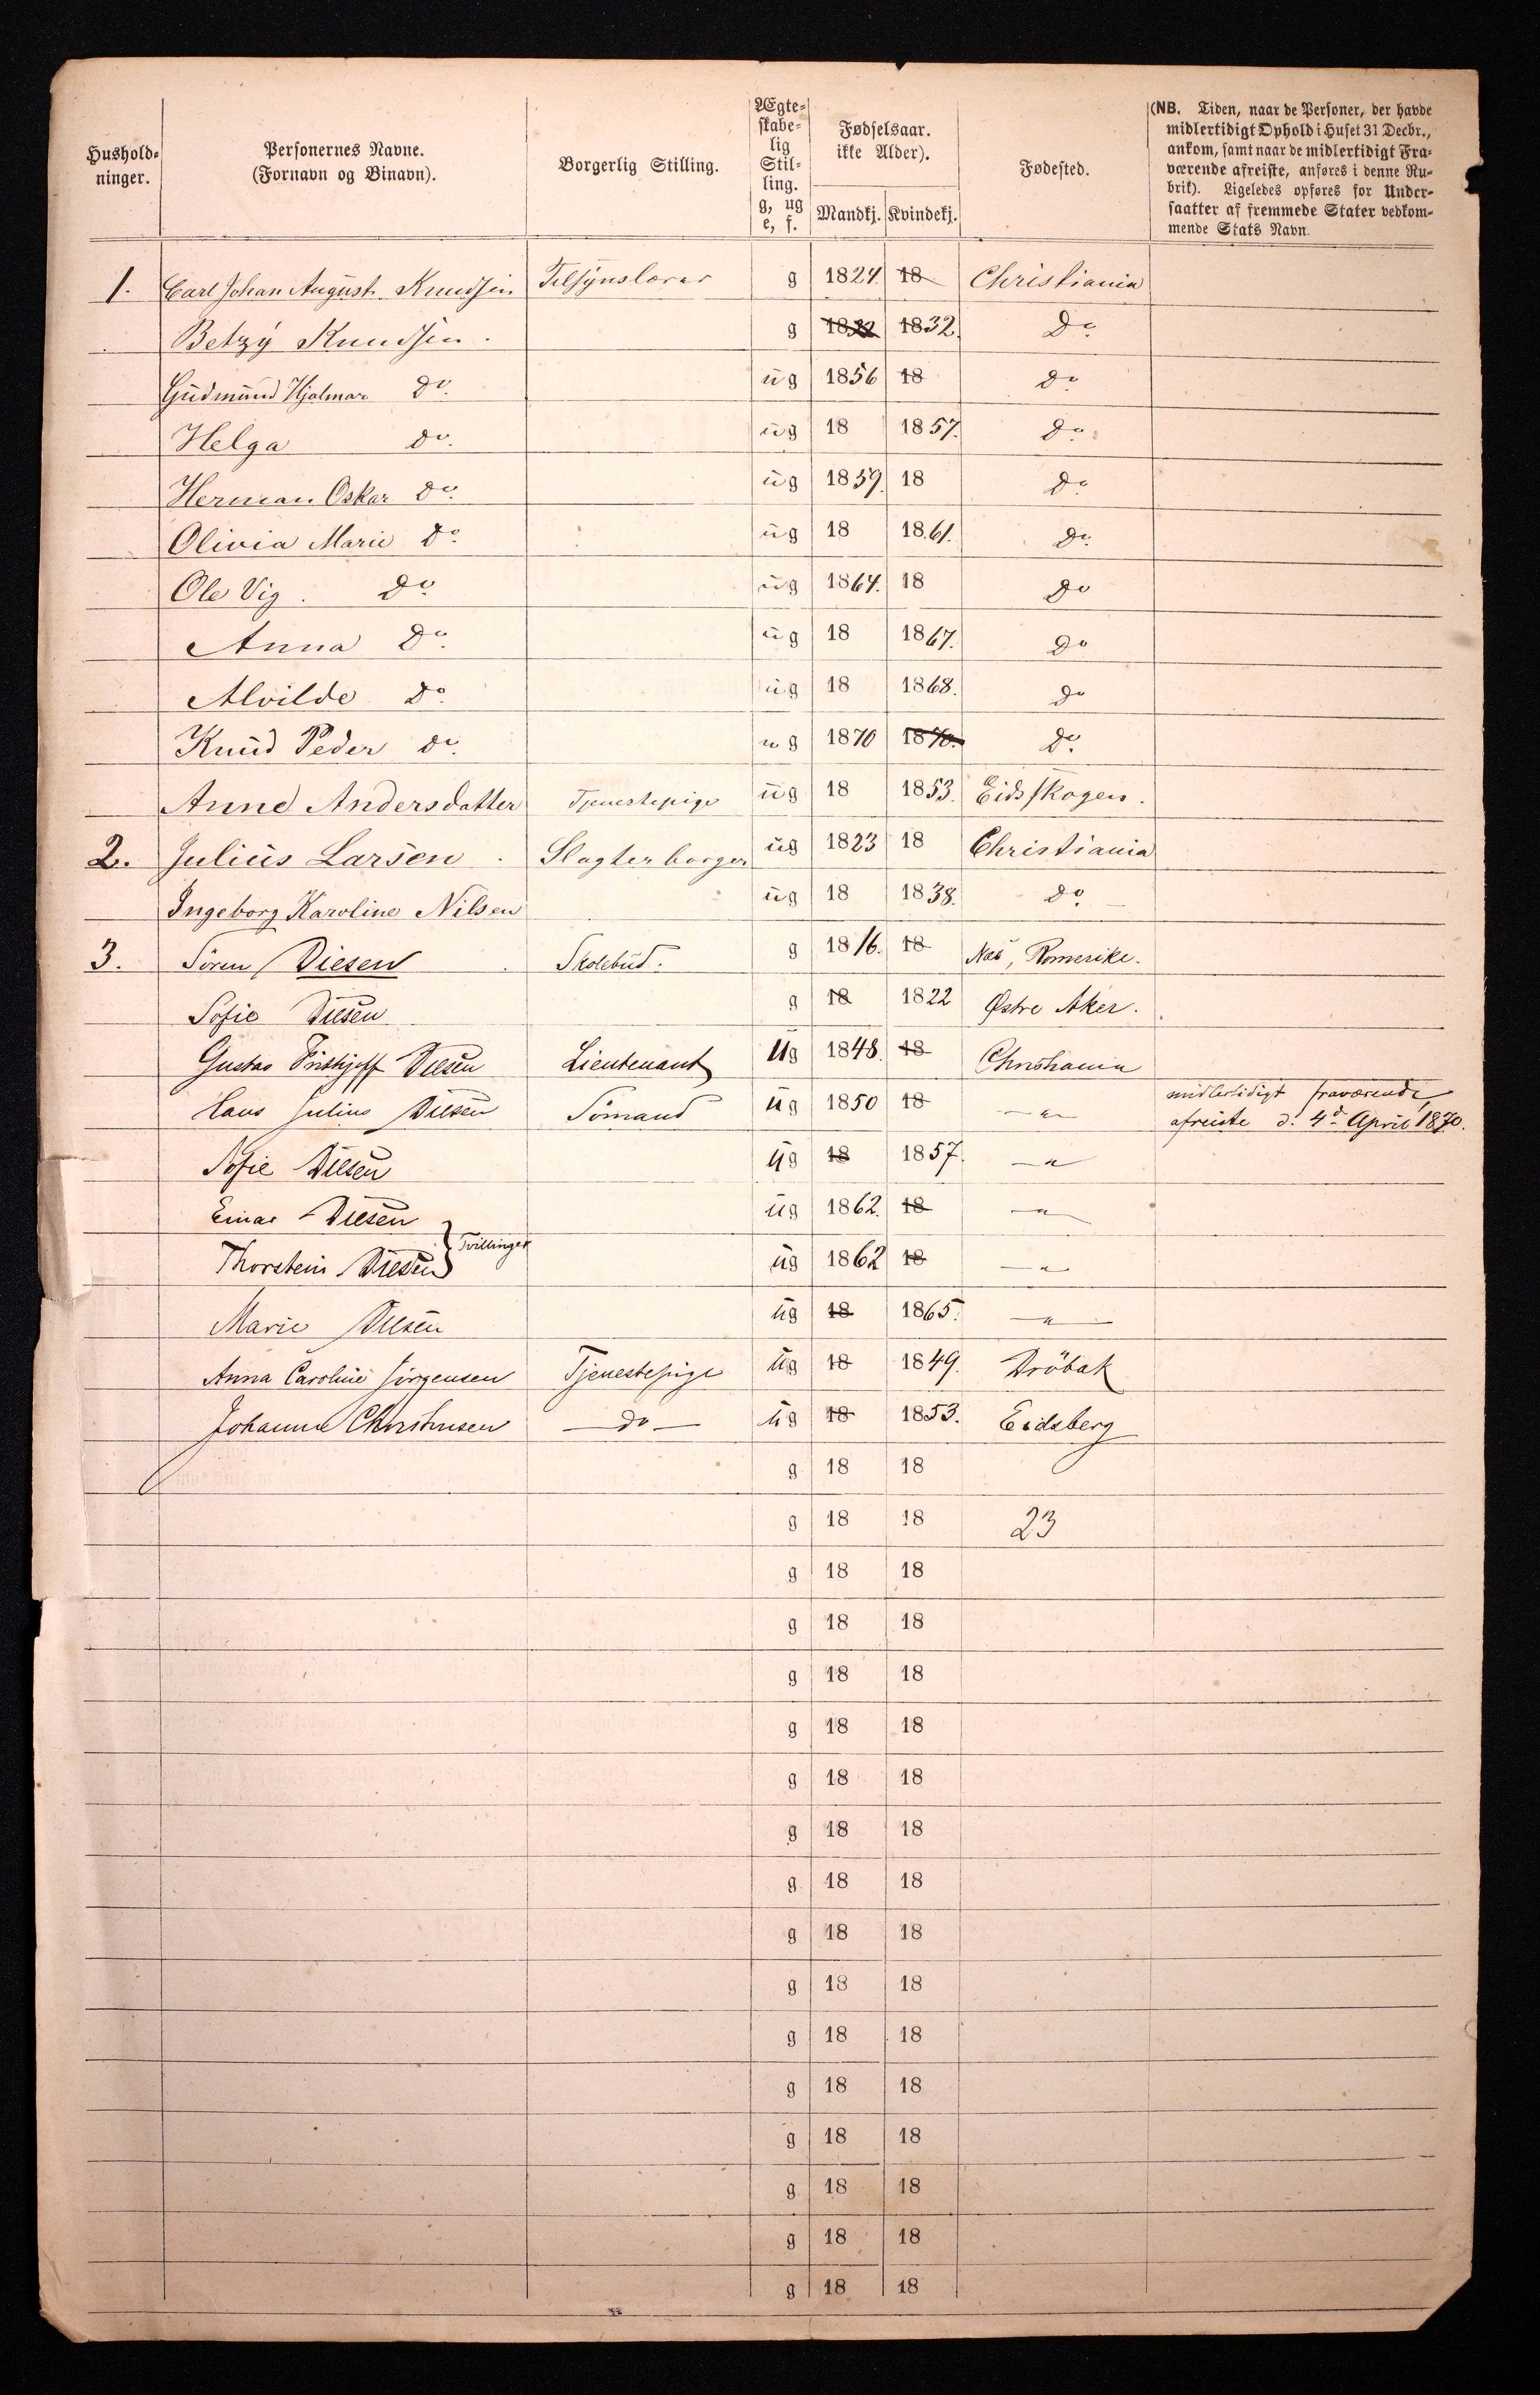 Hushold-
ninger.
Personernes Navne.
(Fornavn og Binavn).
Borgerlig Stilling.
Ægte-
skabe-
lig
Stil-
ling.
g, ug
e, f.
Fødselsaar.
ikke Alder).
Mandkj. Kvindekj.
Fødested.
(NB. Tiden, naar de Personer, der havde
midlertidigt Ophold i Huset 31 Decbr.,
ankom, samt naar de midlertidigt Fra-
værende afreiste, anføres i denne Ru-
brik). Ligeledes opføres for Under-
saatter af fremmede Stater vedkom-
mende Stats Navn.
1. Carl Johan August Knudsen Tilsynslærer g 1824. 18 Christiania
Betzy Knudsen. g 1832 1832. Do
Gudmund Hjalmar Do. ug 1856 18 Do
Helga Do. ug 18 1857. Do
Herman Oskar Do. ug 1859. 18 Do
Olivia Marie Do. ug 18 1861. Do.
Ole Vig. Do. ug 1864. 18 Do
Anna Do. ug 18 1867. Do
Alvilde Do. ug 18 1868. Do
Knud Peder Do. ug 1870 1870. Do.
Anne Andersdatter Tjenestepige ug 18 1853. Eidsskogen.
2. Julius Larsen. Slagterborger ug 1823 18 Christiania
Ingeborg Karoline Nilsen ug 18 1838. Do.
3. Sören Diesen. Skolebud. g 1816. 18 Næs, Romerike.
Sofie Diesen g 18 1822 Østre Aker.
Gustav Frithjoff Diesen Lieutenant ug 1848. 18 Christiania
Hans Julius Diesen Sömand ug 1850 18 — " — midlertidigt fraværende,
afreiste d. 4d April 1870.
Sofie Diesen ug 18 1857. — "
Einar Diesen ug 1862. 18 — " —
Thorstein Diesen } Tvillinger ug 1862 18 — " —
Marie Diesen ug 18 1865. — " —
Anna Caroline Jörgensen Tjenestepige ug 18 1849. Dröbak
Johanne Christensen — do — ug 18 1853. Eidsberg
g 18 18
g 18 18 23
g 18 18
g 18 18
g 18 18
g 18 18
g 18 18
g 18 18
g 18 18
g 18 18
g 18 18
g 18 18
g 18 18
g 18 18
g 18 18
g 18 18
g 18 18